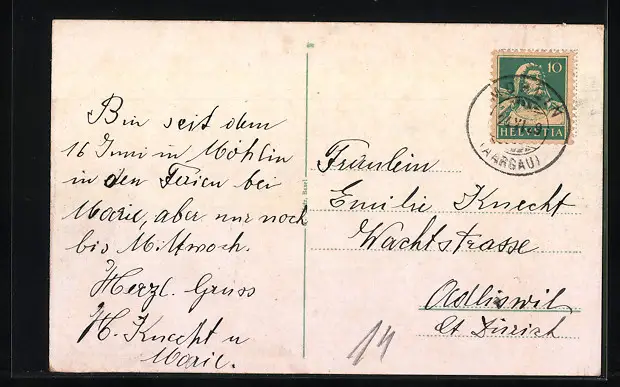 Bin seit dem
16 Juni in Möhlin
in den Ferien bei
Marie, aber nur noch
bis Mittwoch.
Herzl. Gruss
H. Knecht u
Marie.
10
HELVETIA
(AARGAU)
Fräulein
Emilie Knecht
Wachtstrasse
Adliswil
Ct Zürich
14